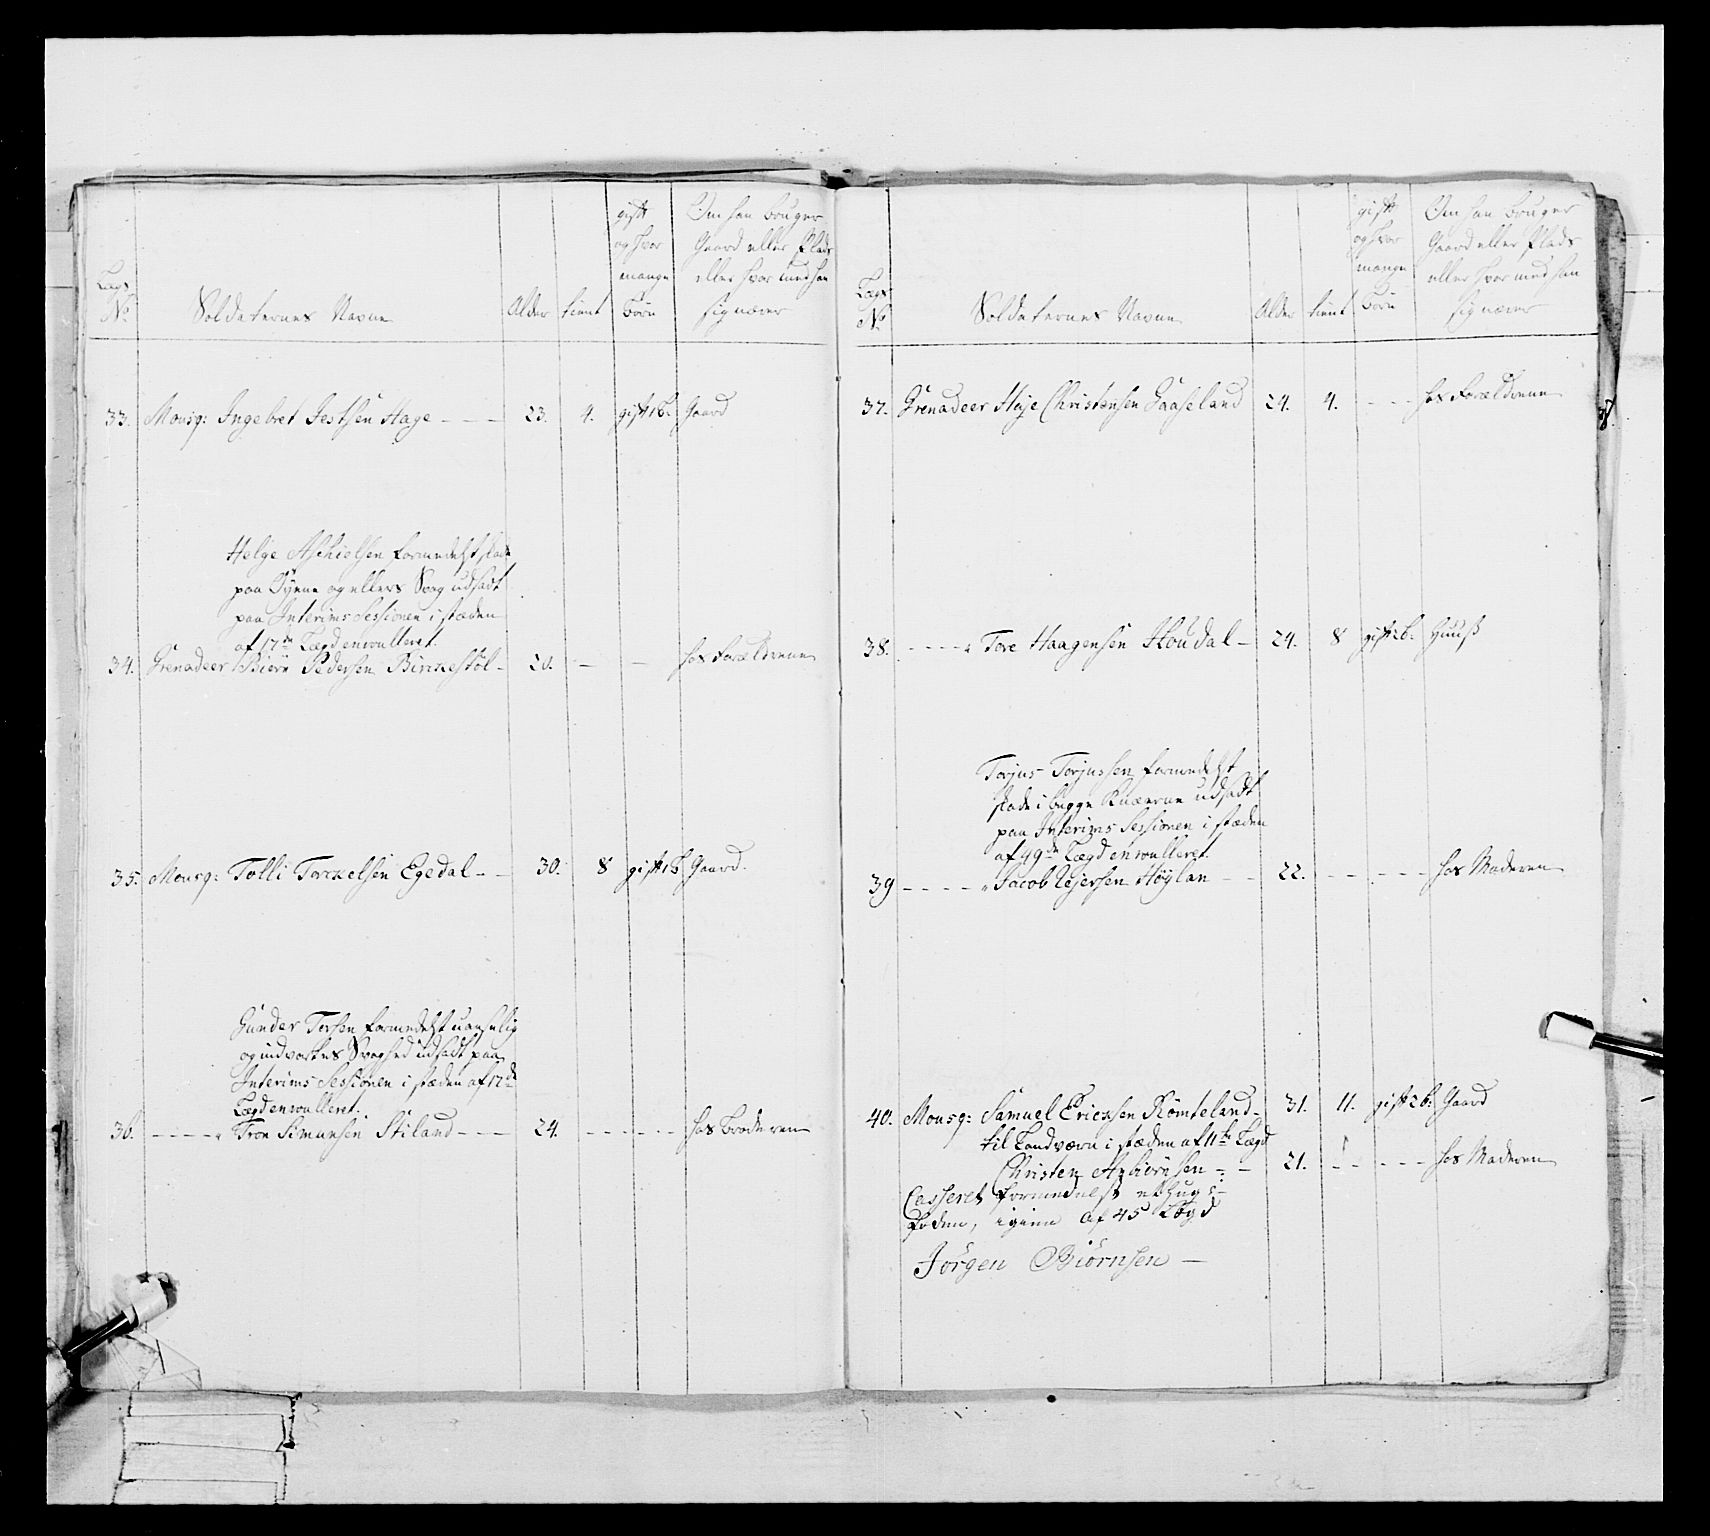 Lægs No
Soldaternes Navne
Alder
tient
gift og hvor mange Børn
Om han bruger Gaard eller Plads eller hvor med han sig nærer
33. Mousq: Ingebret Jestsen Hage - - - 23. 4. gift 1 B. Gaard
Helge Aschielsen formedelst skade
paa Øyene og ellers Svag udsadt
paa Interims Sessionen i stæden
af 17de Lægd enroulleret.
34. Grenadeer Biørn Pedersen Birkestøl - 20. - - hos Forældrene
35. Mousq: Tolli Torkelsen Egedal - - 30. 8 gift 1 B Gaard.
Gunder Torsen formedelst uanselig
og indvortes Svaghed udsadt paa
Interims Sessionen i stæden af 17de
Lægd enroulleret.
36. - - - - " Tron Simonsen Stiland - - - 24. - - - - - - hos Broderen
Lægs No
Soldaternes Navne
Alder
tient
gift og hvor mange Børn
Om han bruger Gaard eller Plads eller hvor med han sig nærer
37. Grenadeer Haje Christensen Gaaseland 24. 4. - - - hos Forældrene
38. - - - - " Tore Haagensen Houdal - 24. 8 gift 2 b. Huuss
Torjus Torjussen formedelst
skade i begge Knæerne udsadt
paa Interims Sessionen i stæden
af 49de Lægd enroulleret.
39 - - - - - " Jacob Rejersen Høylan - - 22. - - - - - hos Moderen
40. Mousq: Samuel Ericksen Rømteland - 31. 11. gift 2 b: Gaard
til Landværn i stæden af 11te Lægd
Christen Asbiørnsen - - 21. - - - - - hos Moderen
Casseret formedelst et hug i
foden, igien af 45 Lægd
Jørgen Biørnsen -